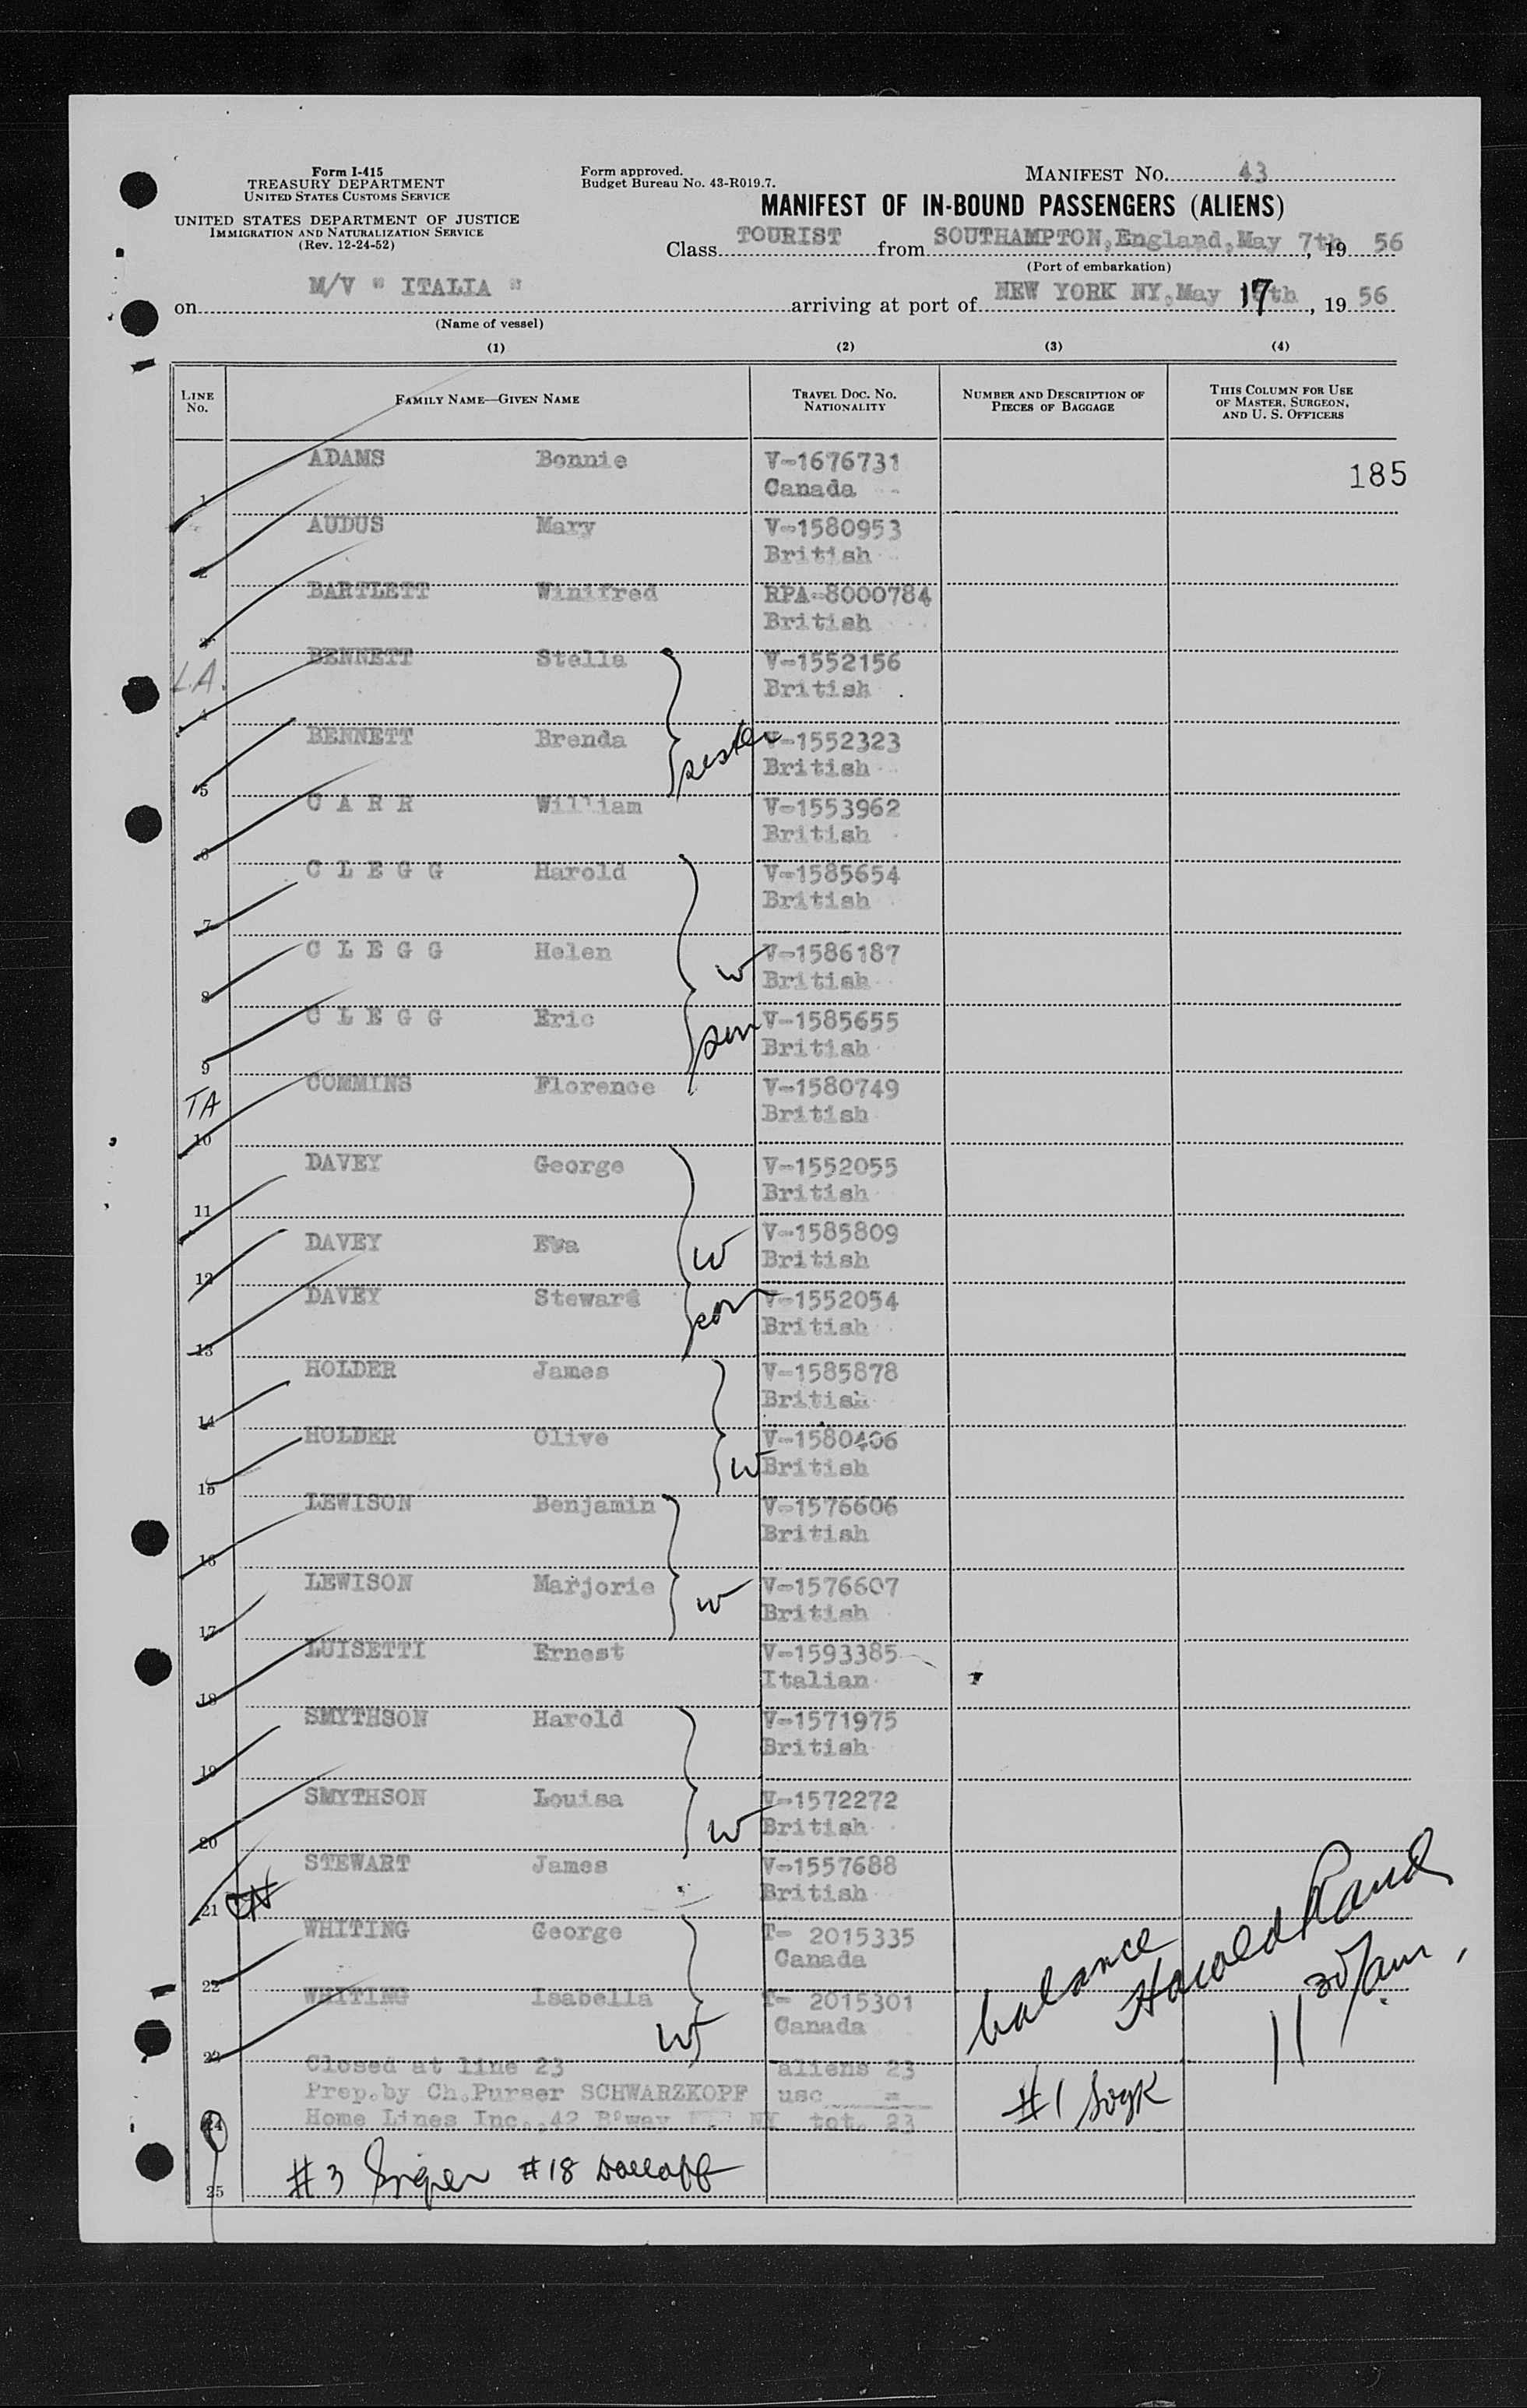 Form I-415
TREASURY DEPARTMENT
UNITED STATES CUSTOMS SERVICE
UNITED STATES DEPARTMENT OF JUSTICE
IMMIGRATION AND NATURALIZATION SERVICE
(Rev. 12-24-52)
Form approved.
Budget Bureau No. 43-R019.7.
MANIFEST NO. 43
MANIFEST OF IN-BOUND PASSENGERS (ALIENS)
Class TOURIST from SOUTHAMPTON, England, May 7th, 19 56
(Port of embarkation)
on M/V " ITALIA " arriving at port of NEW YORK NY, May 17th, 19 56
(Name of vessel)
(1) (2) (3) (4)
LINE NO. FAMILY NAME—GIVEN NAME TRAVEL DOC. NO. NATIONALITY NUMBER AND DESCRIPTION OF PIECES OF BAGGAGE THIS COLUMN FOR USE OF MASTER, SURGEON, AND U. S. OFFICERS
1 ADAMS Bonnie V-1676731 Canada 185
2 AUDUS Mary V-1580953 British
3 BARTLETT Winifred RPA-8000784 British
L.A. 4 BENNETT Stella V-1552156 British
5 BENNETT Brenda sister V-1552323 British
6 C A R R William V-1553962 British
7 C L E G G Harold V-1585654 British
8 C L E G G Helen W V-1586187 British
9 C L E G G Eric son V-1585655 British
TA 10 COMMINS Florence V-1580749 British
11 DAVEY George V-1552055 British
12 DAVEY Eva W V-1585809 British
13 DAVEY Stewart son V-1552054 British
14 HOLDER James V-1585878 British
15 HOLDER Olive W V-1580406 British
16 LEWISON Benjamin V-1576606 British
17 LEWISON Marjorie W V-1576607 British
18 LUISETTI Ernest V-1593385 Italian
19 SMYTHSON Harold V-1571975 British
20 SMYTHSON Louisa W V-1572272 British
21 STEWART James V-1557688 British
22 WHITING George T- 2015335 Canada
23 WHITING Isabella W T- 2015301 Canada
balance Harold Rand 11 30/am.
Closed at line 23 aliens 23
Prep.by Ch.Purser SCHWARZKOPF usc =
24 Home Lines Inc.,42 B'way NY tot. 23
#1
25 #3 #18